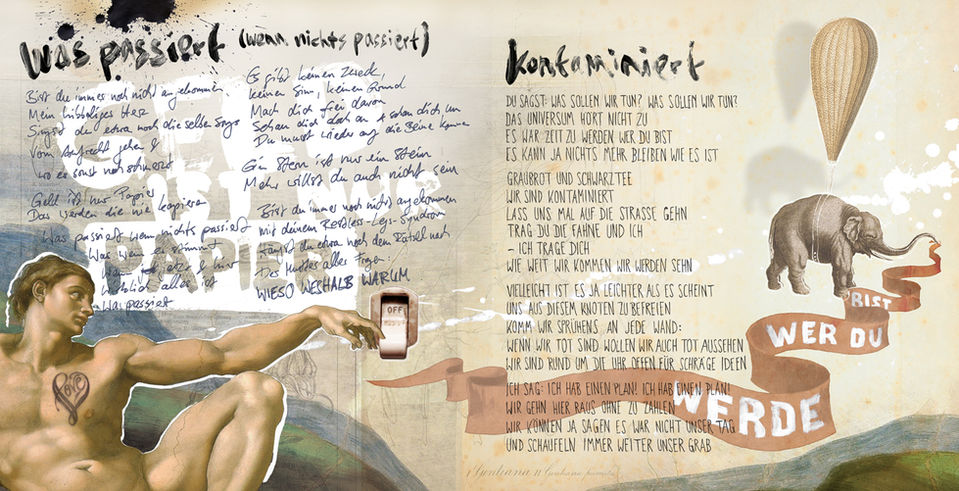 was passiert (wenn nichts passiert)
Bist du immer noch nicht angekommen
Mein hibbeliges Herz
Singst du etwa noch die selbe Songs
Vom Aufrecht gehen &
wo es sonst noch schmerzt
Geld ist nur Papier
Das werden die nie kapieren
Was passiert wenn nichts passiert
Was wenn es stimmt
Wenn jetzt & hier
Wirklich alles ist
Was passiert
Es gibt keinen Zweck,
keinen Sinn, keinen Grund
Mach dich frei davon
Schau dich doch an & schau dich um
Du musst wieder auf die Beine kommen
Ein Stern ist nur ein Stein
Mehr willst du auch nicht sein
Bist du immer noch nicht angekommen
mit deinem Restless-Legs-Syndrom
Kaust du etwa noch dem Rätsel nach
Der Mutter aller Fragen:
WIESO WESHALB WARUM
GELD
IST NUR
PAPIER
OFF
Love
Kontaminiert
DU SAGST: WAS SOLLEN WIR TUN? WAS SOLLEN WIR TUN?
DAS UNIVERSUM HÖRT NICHT ZU
ES WÄR ZEIT ZU WERDEN WER DU BIST
ES KANN JA NICHTS MEHR BLEIBEN WIE ES IST
GRAUBROT UND SCHWARZTEE
WIR SIND KONTAMINIERT
LASS UNS MAL AUF DIE STRASSE GEHN
TRAG DU DIE FAHNE UND ICH
– ICH TRAGE DICH
WIE WEIT WIR KOMMEN WIR WERDEN SEHN
VIELLEICHT IST ES JA LEICHTER ALS ES SCHEINT
UNS AUS DIESEM KNOTEN ZU BEFREIEN
KOMM WIR SPRÜHENS AN JEDE WAND:
WENN WIR TOT SIND WOLLEN WIR AUCH TOT AUSSEHEN
WIR SIND RUND UM DIE UHR OFFEN FÜR SCHRÄGE IDEEN
ICH SAG: ICH HAB EINEN PLAN! ICH HAB EINEN PLAN!
WIR GEHN HIER RAUS OHNE ZU ZAHLEN
WIR KÖNNEN JA SAGEN ES WAR NICHT UNSER TAG
UND SCHAUFELN IMMER WEITER UNSER GRAB
WERDE
WER DU
BIST